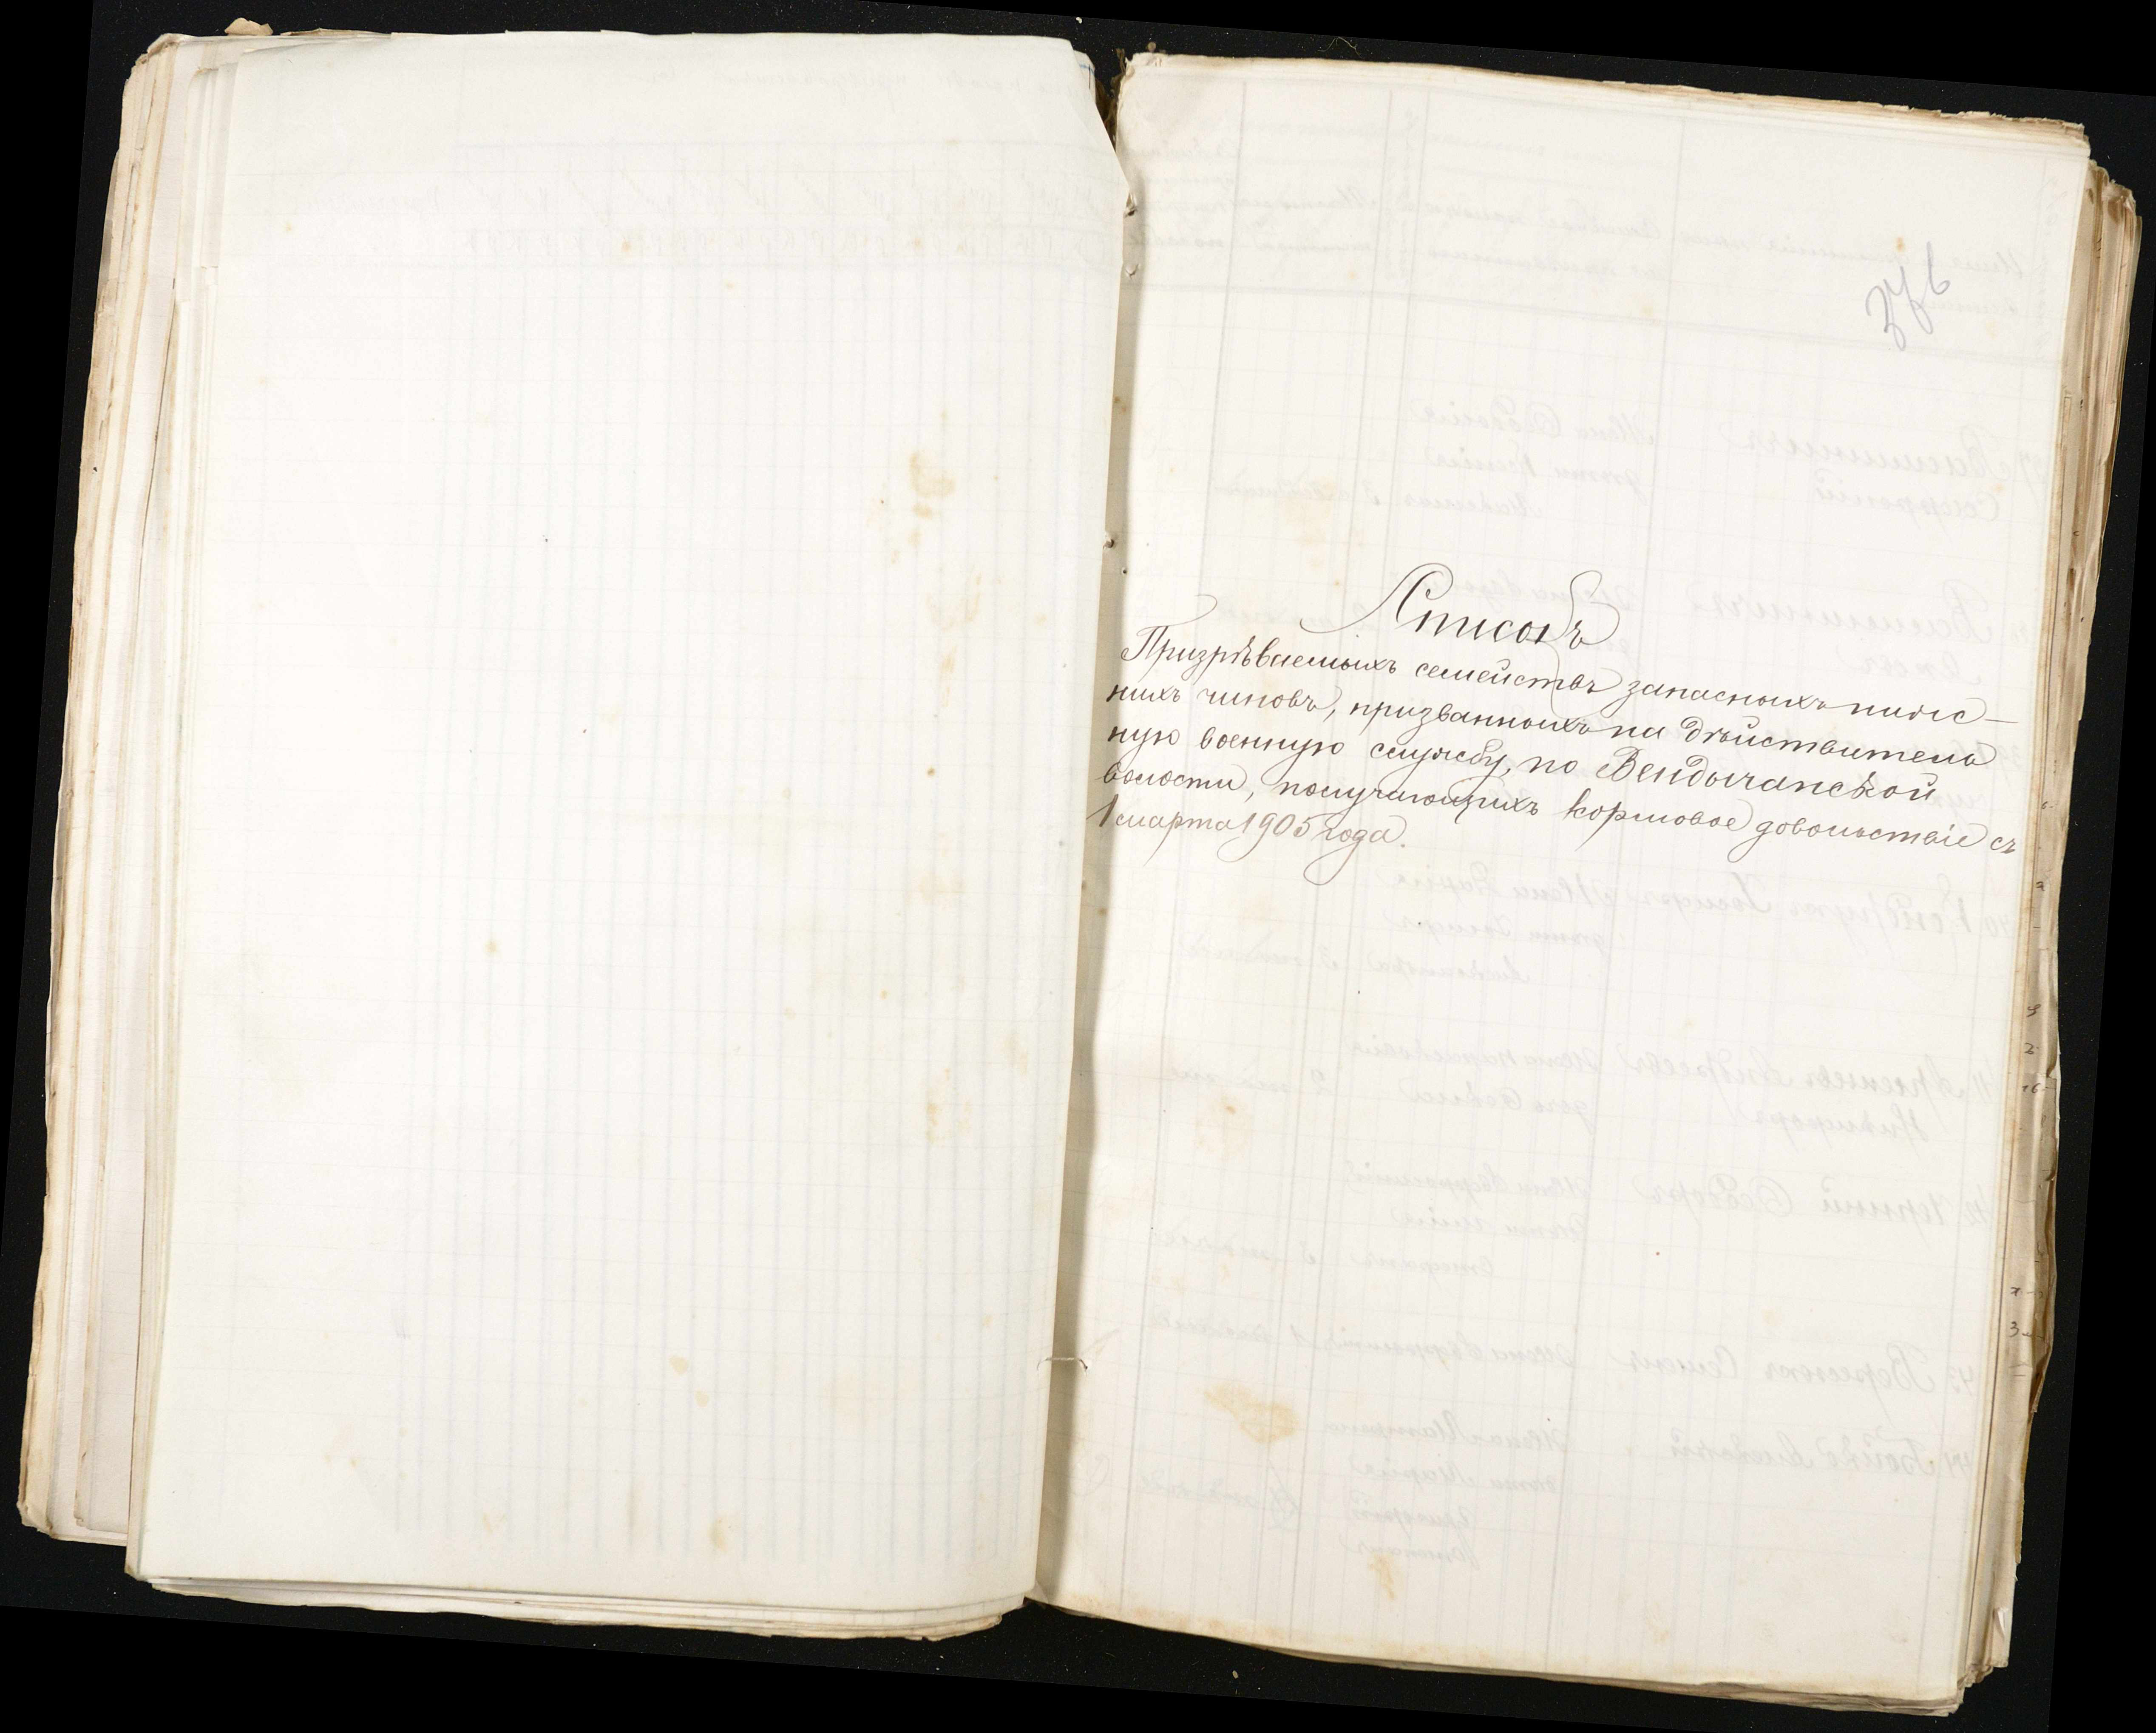 376
Списокъ
Призрѣваемыхъ семействъ запасныхъ ниж-
нихъ чиновъ, призванныхъ на дѣйствитель
ную военную службу, по Вендычанской
волости, получающихъ кормовое довольствіе съ
1 марта 1905 года.